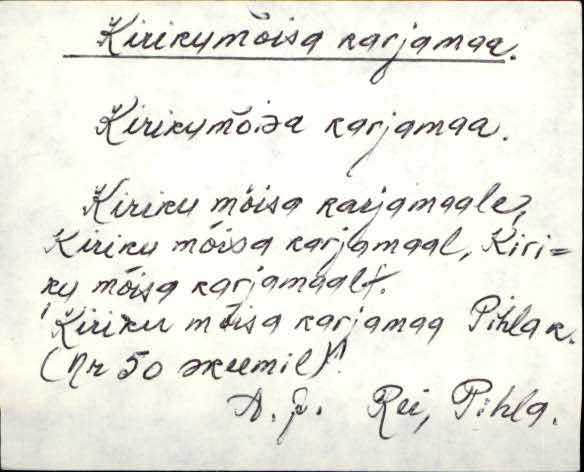 Kirikumõisa karjamaa.
Kirikumõisa karjamaa.
Kiriku mõisa karjamaale,
Kiriku mõisa karjamaal, Kiri=
ku mõisa karjamaalt.
"Kiriku mõisa karjamaa Pihla k.
(Nr 50 skeemil)"
A. J. Rei, Pihla.